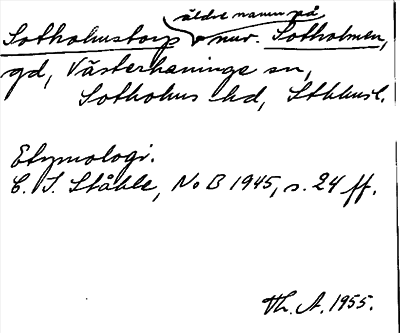 äldre namn på
Sotholmstorp nuv. Sotholmen,
gd, Västerhaninge sn,
Sotholms hd, Sthlmsl.
Etymologi.
C. I. Ståhle, NoB 1945, s. 24 ff.
Th. A. 1955.